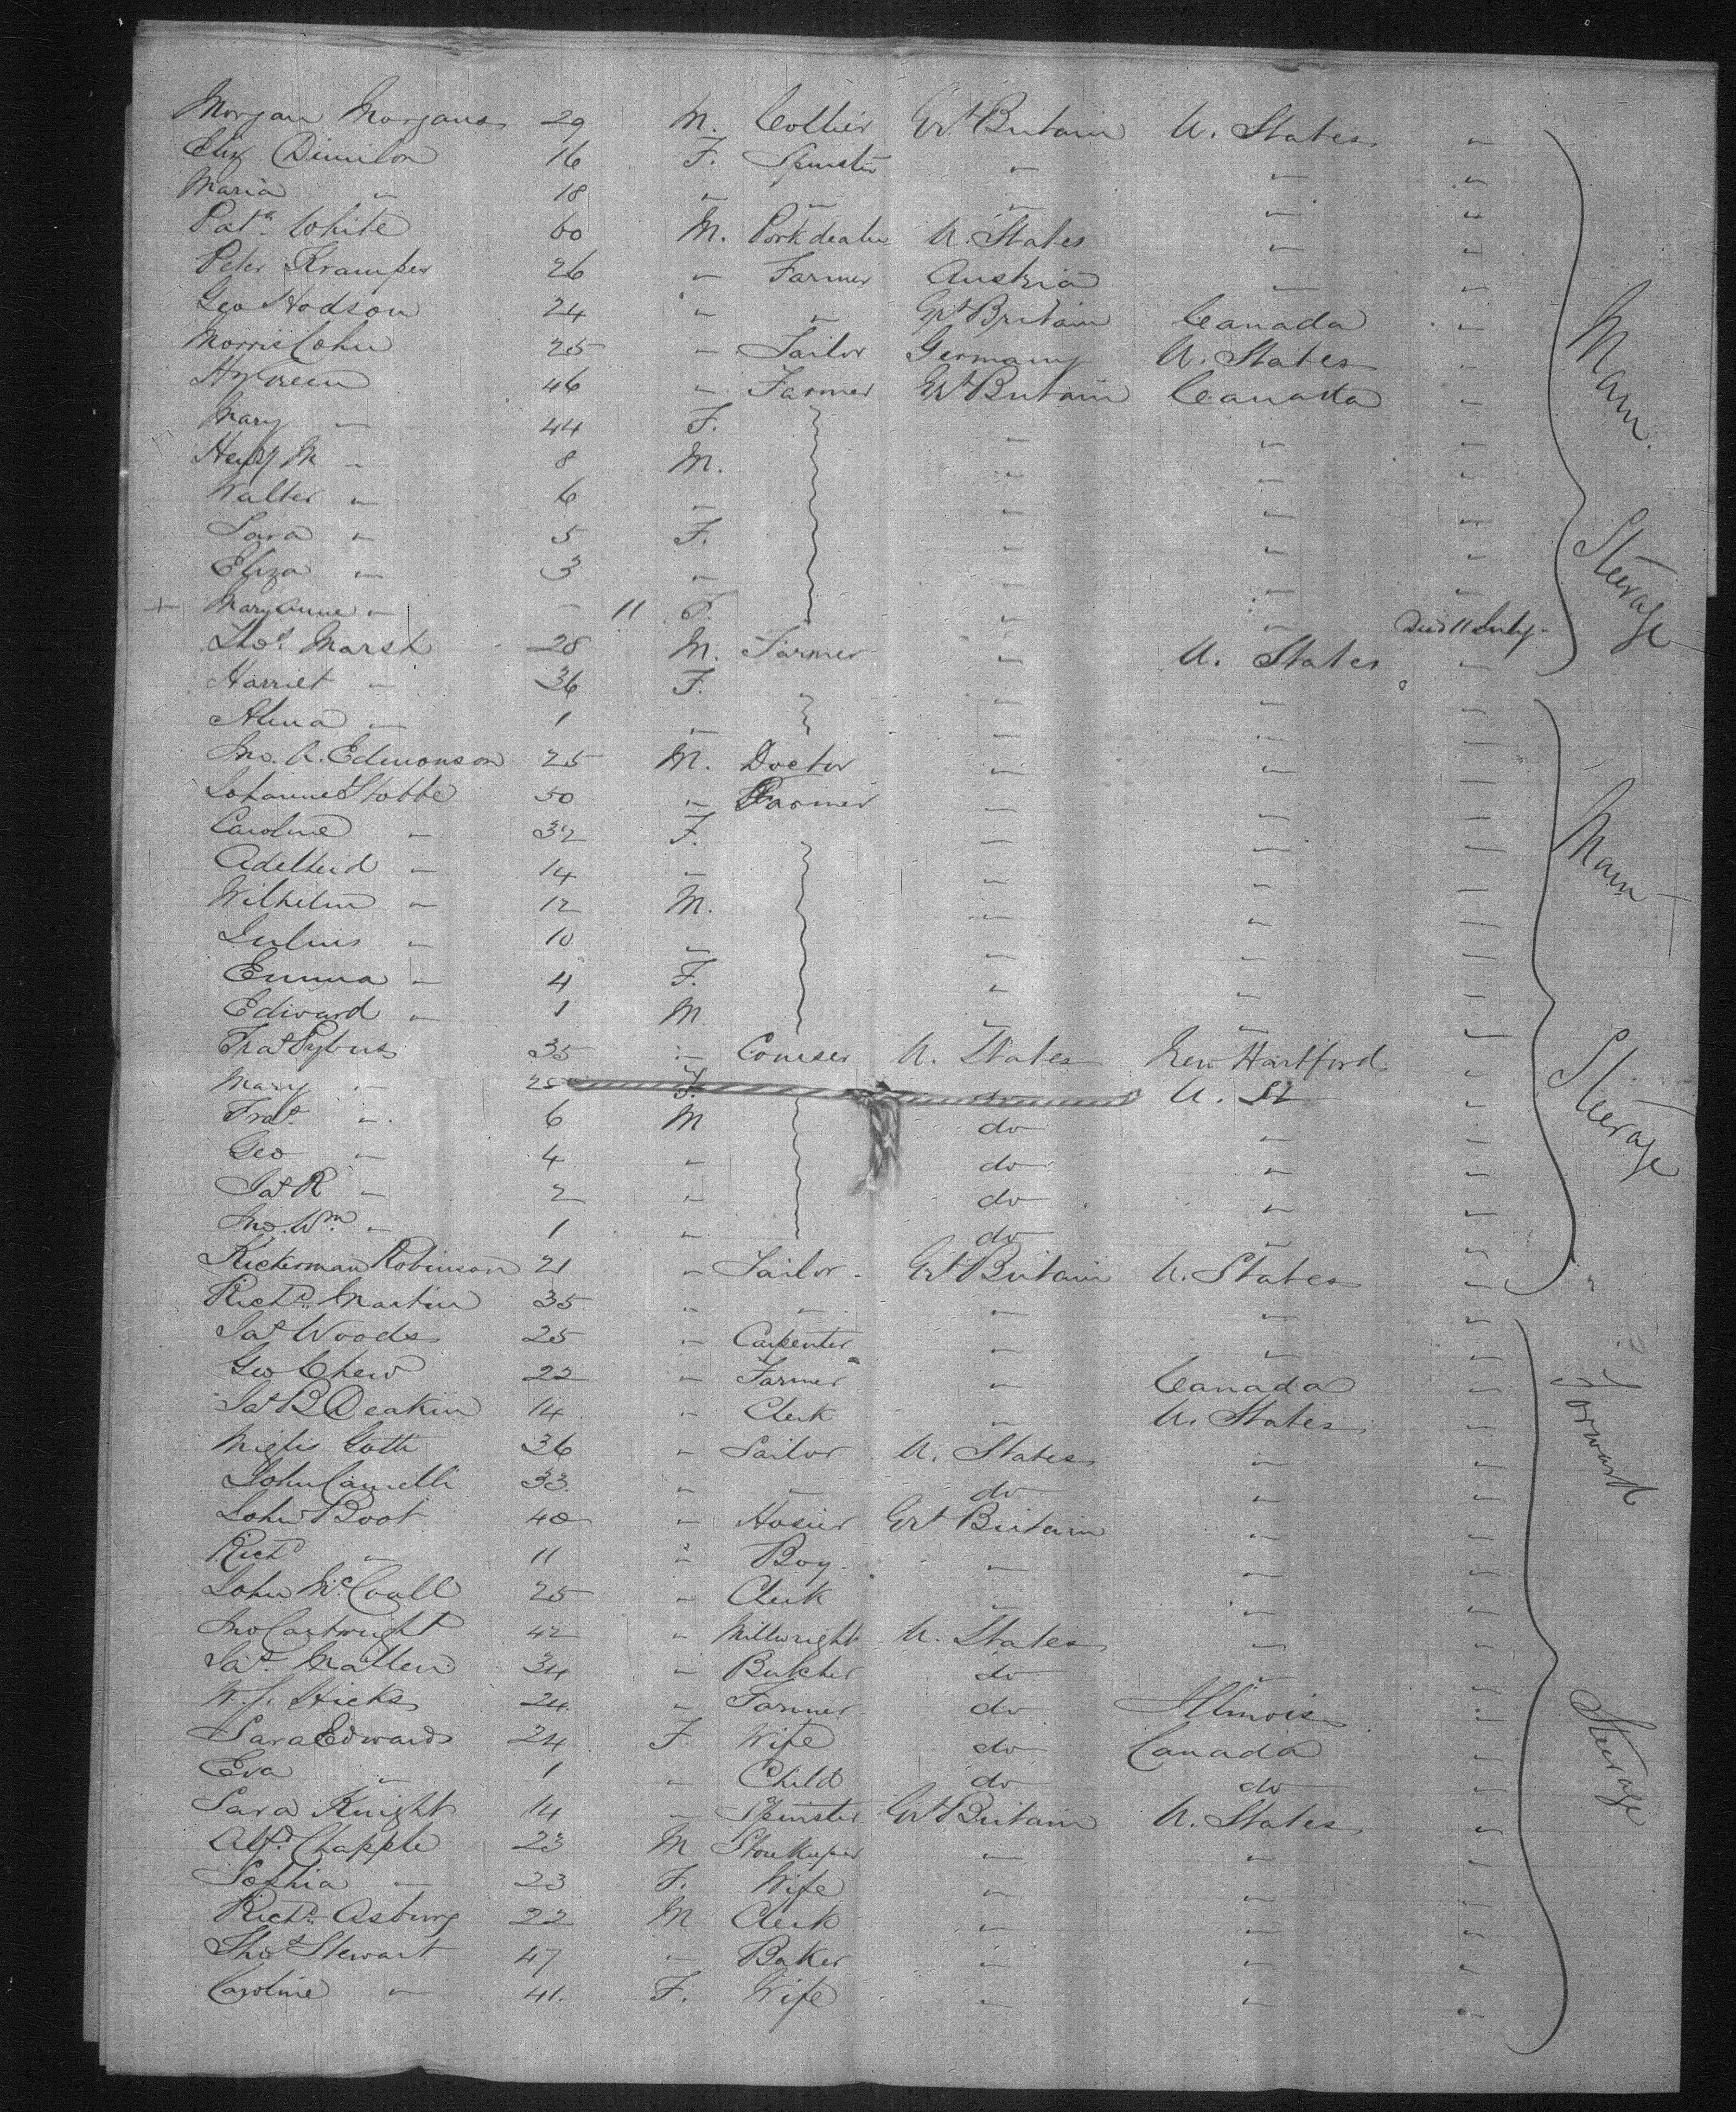 Morgan Morgans 29 M. Collier Grt Britain U. States "
Eliz Dimilon 16 F. Spinster " " "
Maria " 18 " " " " "
Patk. White 60 M. Porkdealer U. States " "
Peter Kramper 26 " Farmer Austria " "
Geo Hodson 24 " " Grt Britain Canada "
Morris Cohn 25 " Tailor Germany U. States "
Hy Green 46 " Farmer Grt Britain Canada "
Mary " 44 F. " " "
Henry M " 8 M. " " "
Walter " 6 " " " "
Sara " 5 F. " " "
Eliza " 3 " " " "
+ Mary Anne " - 11 F. " " Died 11 July
Thos. Marsh 28 M. Farmer " U. States "
Harriet " 36 F. " " "
Alma " 1 " " " "
Jno. A. Edmonson 25 M. Doctor " " "
Johannes Stobbe 50 " Farmer " " "
Caroline " 32 F. " " "
Adelheid " 14 " " " "
Wilhelm " 12 M. " " "
Julius " 10 " " " "
Emma " 4 F. " " "
Edward " 1 M " " "
Fras Pybus 35 " U. States New Hartford "
Mary " 25 F. do U. St "
Fras. " 6 M do " "
Geo " 4 " do " "
Jas R " 2 " do " "
Jno. Wm. " 1 " do " "
Kickerman Robinson 21 " Sailor Grt Britain U. States "
Richd. Martin 35 " " " " "
Jas Woods 25 " Carpenter " " "
Geo Chew 22 " Farmer " Canada "
Jas B Deakin 14 " Clerk " U. States "
36 " Sailor U. States " "
John 33 " " do " "
John Boot 40 " Hosier Grt Britain " "
Richd " 11 " Boy " " "
John McCoull 25 " Clerk " " "
Jno Cartwright 42 " Millwright U. States " "
Jas. Mallen 34 " Butcher do " "
W. J. Hicks 24 " Farmer do Illinois "
Sara Edwards 24 F Wife do Canada "
Eva " 1 " Child do do "
Sara Knight 14 " Spinster Grt Britain U. States "
Alfd. Chapple 23 M Storekeeper " " "
Sophia " 23 F. Wife " " "
Richd. Asbury 22 M Clerk " " "
Thos Stewart 47 " Baker " " "
Caroline " 41. F. Wife " " "
Main. Steerage
Main Steerage
Forward Steerage